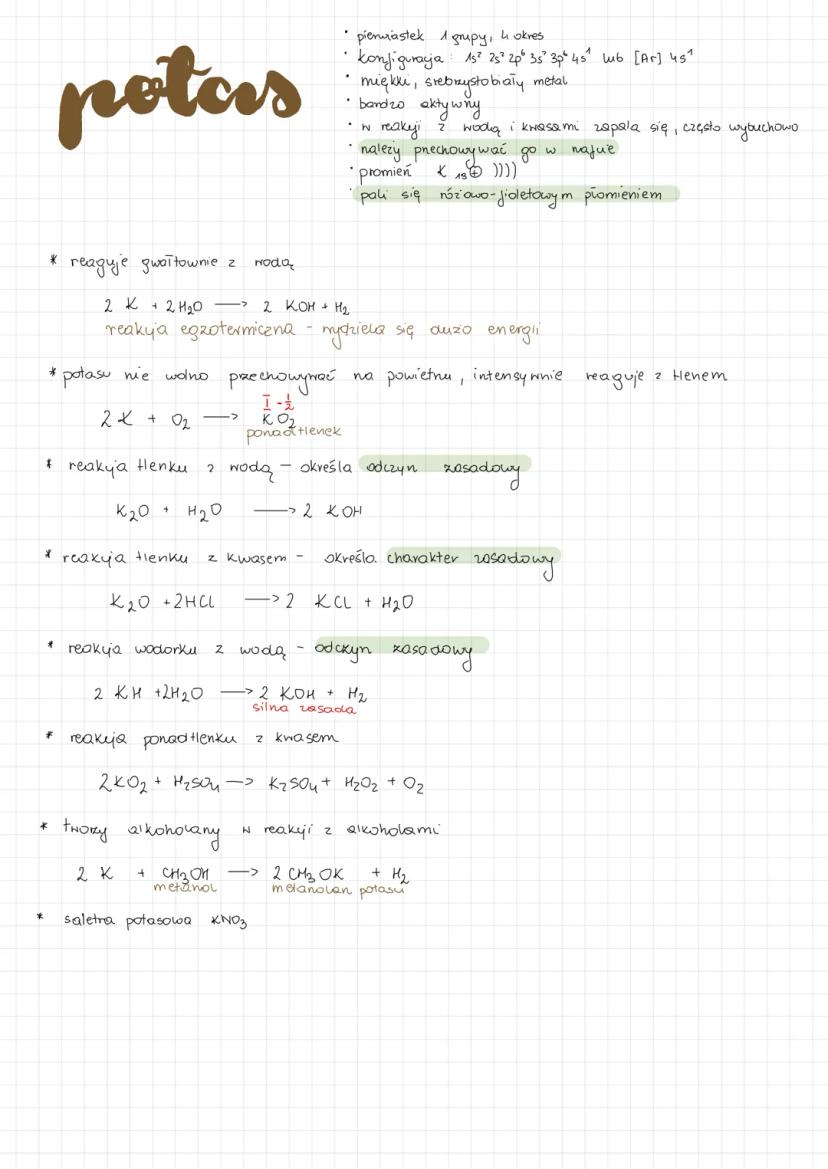 potas
• pierwiastek 1 grupy, 4 okres
• konfiguracja: 1s² 2s² 2p⁶ 3s² 3p⁶ 4s¹ lub [Ar] 4s¹
• miękki, srebrzystobiały metal
• bardzo aktywny
• w reakcji z wodą i kwasami zapala się, często wybuchowo
• należy przechowywać go w nafcie
• promień K ₁₉⊕ ))))
• pali się różowo-fioletowym płomieniem
* reaguje gwałtownie z wodą
2 K + 2 H₂O —> 2 KOH + H₂
reakcja egzotermiczna - wydziela się dużo energii
* potasu nie wolno przechowywać na powietrzu, intensywnie reaguje z tlenem
I -½
2 K + O₂ —> KO₂
ponadtlenek
* reakcja tlenku z wodą – określa odczyn zasadowy
K₂O + H₂O —> 2 KOH
* reakcja tlenku z kwasem – określa charakter zasadowy
K₂O + 2HCl —> 2 KCl + H₂O
* reakcja wodorku z wodą – odczyn zasadowy
2 KH + 2H₂O —> 2 KOH + H₂
silna zasada
* reakcja ponadtlenku z kwasem
2KO₂ + H₂SO₄ —> K₂SO₄ + H₂O₂ + O₂
* tworzy alkoholany w reakcji z alkoholami
2 K + CH₃OH —> 2 CH₃OK + H₂
metanol metanolan potasu
* saletra potasowa KNO₃